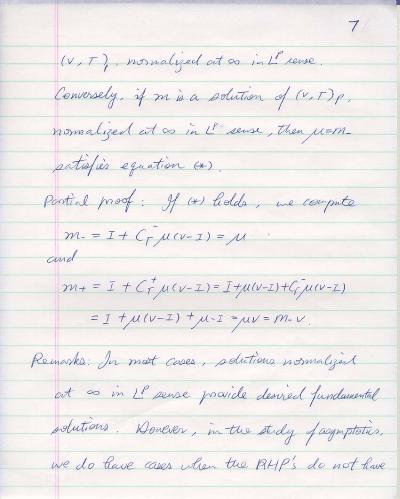 7
(v, T)p, normalized at ∞ in Lᵖ sense.
Conversely, if m is a solution of (v, T)p,
normalized at ∞ in Lᵖ sense, then μ=m-
satisfies equation (*).
Partial proof: If (*) holds, we compute
m- = I + C_T^- μ(v-I) = μ
and
m+ = I + C_T^+ μ(v-I) = I+μ(v-I)+C_T^- μ(v-I)
= I + μ(v-I) + μ-I = μv = m-v.
Remarks: In most cases, solutions normalized
at ∞ in Lᵖ sense provide desired fundamental
solutions. However, in the study of asymptotics,
we do have cases when the RHP's do not have